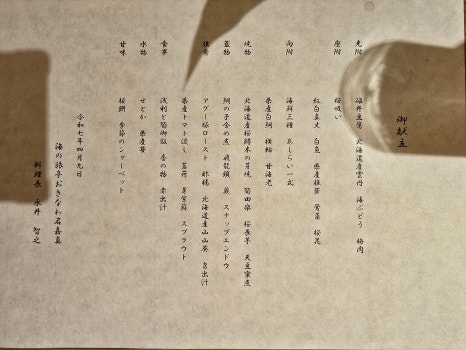 御献立
先附 雄井直霄 北海道産雲丹 海ぶどう 梅肉
座附 桜吸い
紅白真丈 白魚 県産椎茸 菜 桜花
向附 海鮮三種 あしらい一式
県産白鯛 横輪 甘海老
焼物 北海道産桜鱒木の芽焼 筍田楽 桜長芋 天豆蜜煮
蓋物 鯛の子含め煮 飛龍頭 蕨 スナップエンドウ
強肴 アグー豚ロースト 酢橘 北海道産山山葵 旨出汁
県産トマト浸し 茗荷 芽紫蘇 スプラウト
食事 浅利と筍御飯 香の物 赤出汁
水物 せとか 県産苺
甘味 桜餅 季節のシャーベット
令和七年四月九日
海の旅亭おきなわ名嘉真
料理長 永井 智之